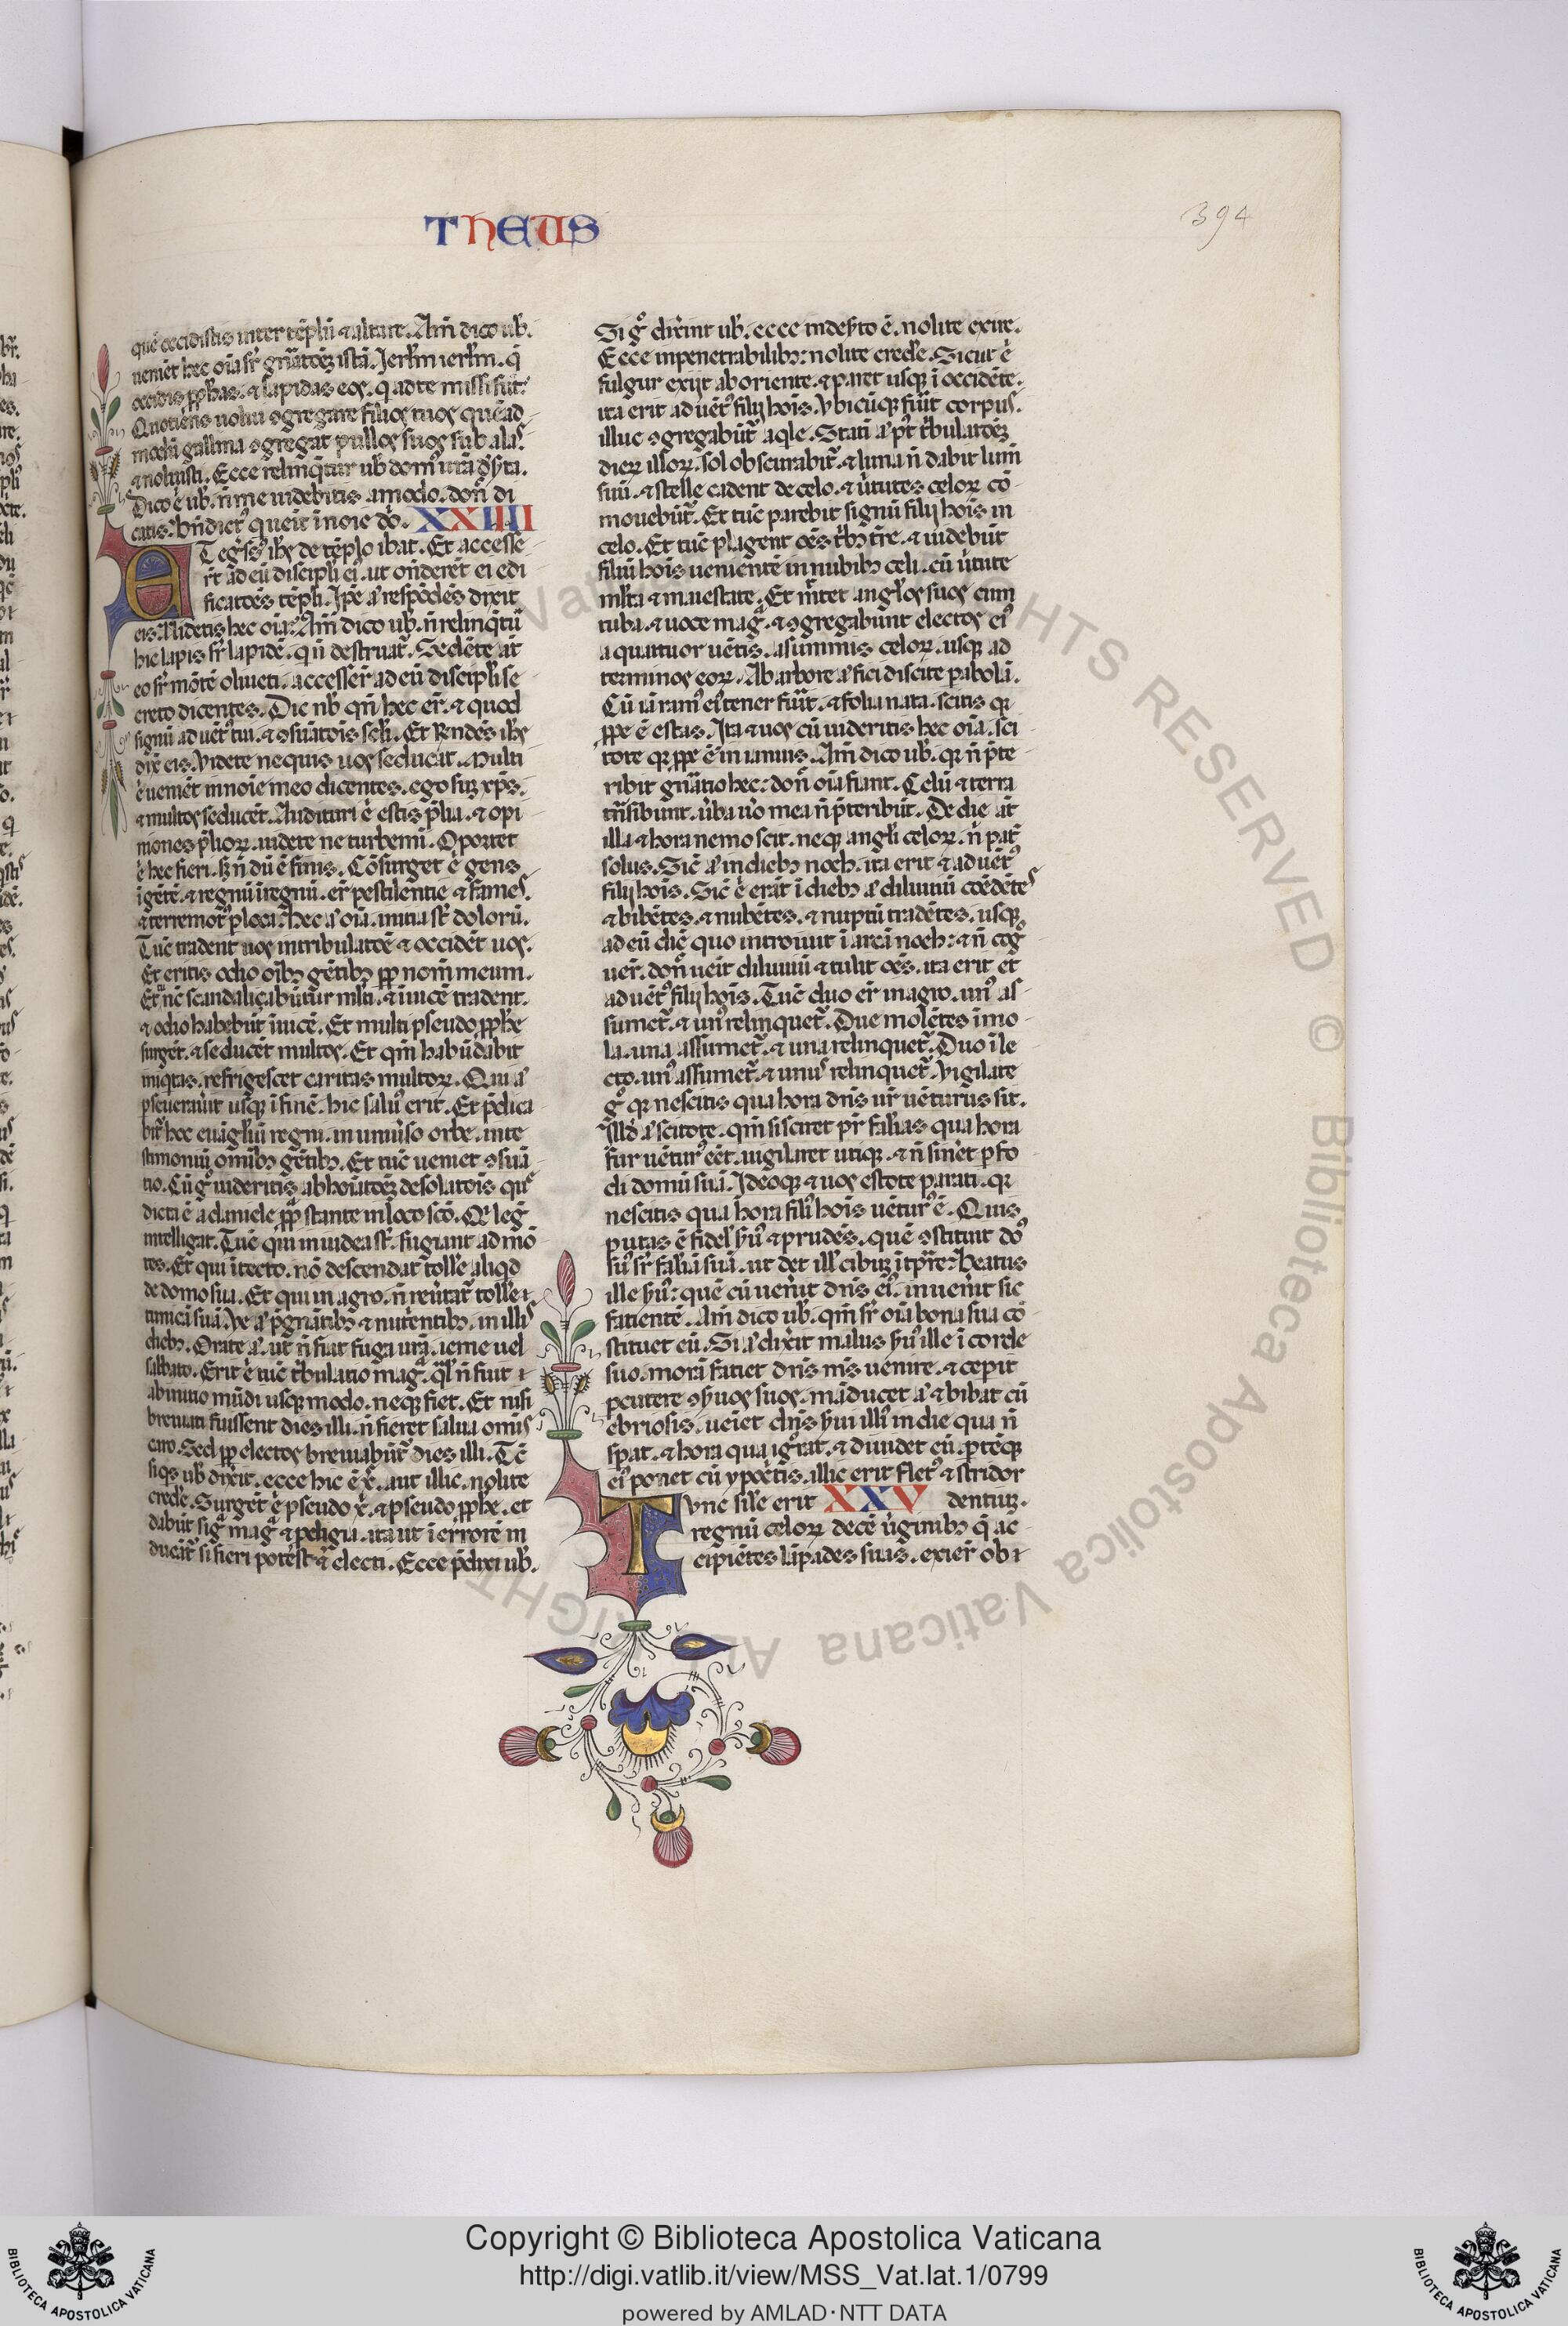 THEUS
394
quē occidistis inter tēplū ⁊ altare. Am̄ dico uƀ.
ueniēt hec oīa sr̄ gn̄atōeȝ istā. Jerl̄m ierl̄m. q̄
occidis ꝓpħas. ⁊ lapidas eos. q̄ ad te missi sūt.
Quotiens uolui ꝯgregare filios tuos quēad
modū gallina ꝯgregat pullos suos sub alas.
⁊ noluisti. Ecce relinq̄tur uƀ domꝰ ur̄a đs̄ta.
Dico ē uƀ. n̄ me uidebitis amodo. don̄ di
catis. bn̄dictꝰ que īt ī noīe dō. XXIIII
ET egr̄sꝰ ih̄s de tēplo ibat. Et accesse
rt̄ ad eū discipl̄i eiꝰ. ut on̄derēt ei edi
ficatōēs tēpli. Ip̄e aͥ respōdēs dixit
eis. Uidetis hec oīa? Am̄ dico uƀ. n̄ relinq̄tur̄
hic lapis sr̄ lapidē. q̄ n̄ destruat̄. Sedēte at̄
eo sr̄ mōtē oliueti. accesser̄ ad eū discipl̄i se
creto dicentes. Dic nƀ qn̄ hec er̄t. ⁊ quod
signū aduētꝰ tui. ⁊ ꝯsūatōis scl̄i. Et Rēndēs ih̄s
dix̄ eis. Videte ne quis uos seducat. Multi
ē uenient in noīe meo dicentes. ego suȝ xp̄s.
⁊ multos seducēt. Audituri ē estis p̄lia. ⁊ opi
niones p̄lioꝝ. uidete ne turbemī. Oportet
ē hec fieri. sȝ n̄ dū ē finis. Cōsurget ē gens
ī gētē. ⁊ regnū ī regnū. er̄t pestilentie ⁊ fames.
⁊ terremotꝰ p loca. hec aͥ oīa. initia st̄ dolorū.
Tūc tradent uos in tribulatōē ⁊ occidēt uos.
Et eritis odio oīƀȝ gētibȝ ꝓp nom̄ meum.
Et tūc scandaliçabūtur ml̄ti. ⁊ īuicē tradent.
⁊ odio habebūt īuicē. Et multi pseudo ꝓpħe
surgēt. ⁊ seducēt multos. Et qm̄ habūdabit
iniq̄tas. refrigescet caritas multoꝝ. Qui aͥ
ꝑseuerauīt usqȝ ī finē. hic saluꝰ erit. Et p̄dica
bit̄ hoc euāgl̄iū regni. in uniūso orbe. in te
stimoniū omībȝ gētibȝ. Et tūc ueniet ꝯsūa
tio. Cū gͦ uideritis abhoīatōeȝ desolatōis que
dicta ē a daniele ꝓpħa stante in loco scō. Qͥ leḡ
intelligat. Tūc qui in iudea st̄. fugiant ad mō
tes. Et qui ī tecto. nō descendat toll̄e aliqd
de domo sua. Et qui in agro. n̄ reūtat̄ toll̄e
tunicā suā. Ve aͥ p̄gnātibȝ ⁊ nutrientibȝ. in illis
diebȝ. Orate aͥ. ut n̄ fiat fuga ur̄a. ieme uel
sabbato. Erit ē tūc tͥbulatio magͣ. q̄l n̄ fuit
ab initio mūdi usqȝ modo. neqȝ fiet. Et nisi
breuiati fuissent dies illi. n̄ fieret salua omīs
caro. Sed ꝓp electos breuiabūt̄ dies illi. Tc̄
siqs uƀ dix̄it. ecce hic ē x̄. aut illic. nolite
cred̄e. Surgēt ē pseudo x̄. ⁊ pseudo ꝓpħe. et
dabūt sigͣ magͣ ⁊ ꝓdigia. ita ut ī errorē in
ducāt̄ si fieri potest ēt electi. Ecce p̄dixi uƀ.
Si gͦ dixīnt uƀ. ecce in des̄to ē. nolite exire.
Ecce inpenetrabilibȝ: nolite cred̄e. Sicut ē
fulgur exijt ab oriente. ⁊ paret usqȝ ī occidēte.
ita erit aduētꝰ filij hoīs. Vbicūqȝ fuīt corpus.
illuc ꝯgregabūt̄ aqͥle. Stati aͥ pꝰt tͥbulatōeȝ
dieꝝ illoꝝ. sol obscurabit̄. ⁊ luna n̄ dabit lum̄
suū. ⁊ stelle cadent de celo. ⁊ ūtutes celoꝝ cō
mouebūt̄. Et tūc parebit signū filij hoīs in
celo. Et tūc plāgent oēs tͥbȝ tr̄e. ⁊ uidebūt
filiū hoīs uenientē in nubibȝ celi. cū ūtute
ml̄ta ⁊ maiestate. Et mͥttet angl̄os suos cum
tuba. ⁊ uoce magͣ. ⁊ ꝯgregabunt electos eiꝰ
a quattuor uētis. a summis celoꝝ. usqȝ ad
terminos eoꝝ. Ab arbore aͥ fici discite pabolā.
Cū iā ramꝰ eiꝰ tener fuīt. ⁊ folia nata. scitis qꝛ
ꝓpe ē estas. Ita ⁊ uos cū uideritis hec oīa. sci
tote qꝛ ꝓpe ē in ianuis. Am̄ dico uƀ. qꝛ n̄ p̄te
ribit gn̄atio hec: don̄ oīa fiant. Celū ⁊ terra
tn̄sibunt. ūba ūo mea n̄ p̄teribūt. De die at̄
illa ⁊ hora nemo scit. neqȝ angl̄i celoꝝ. n̄ pat̄
solus. Sic̄ aͥ in diebȝ noeh. ita erit ⁊ aduētꝰ
filij hoīs. Sic̄ ē erāt ī diebȝ aͣ diluuiū cōedētes
⁊ bibētes. ⁊ nubētes. ⁊ nuptū tradētes. usqȝ
ad eū diē quo introiuit ī arcā noeh: ⁊ n̄ cogͦ
uer̄t. don̄ ueīt diluuiū ⁊ tulit oēs. ita erit et
aduētꝰ filij hoīs. Tūc duo er̄t in agro. unꝰ as
sumet̄. ⁊ unꝰ relinquet̄. Due molētes ī mo
la. una assumet̄. ⁊ una relinquet̄. Duo ī le
cto. unꝰ assumet̄. ⁊ unus relinquet̄. Vigilate
gͦ qꝛ nescitis qua hora dn̄s ur̄ uēturus sit.
Illđ aͥ scitote. qm̄ si sciret pr̄ fal̄ias qua hora
fur uēturꝰ eēt. uigilaret utiqȝ. ⁊ n̄ sinēt ꝑfo
di domū suā. Ideoqȝ ⁊ uos estote parati. qꝛ
nescitis qua hora filiꝰ hoīs uēturꝰ ē. Quis
putas ē fidel̄ s̄uꝰ ⁊ prudēs. quē ꝯstituit dn̄s
suꝰ sr̄ fal̄iā suā. ut det ill̄ cibuȝ ī tp̄re? Beatus
ille s̄uꝰ: quē cū uen̄it dn̄s eiꝰ. inuen̄it sic
facientē. Am̄ dico uƀ. qm̄ sr̄ oīa bona sua cō
stituet eū. Si aͥ dix̄it malus s̄uꝰ ille ī corde
suo. morā faciet dn̄s ms̄ uenire. ⁊ cepit
ꝑcutere ꝯs̄uos suos. māducet aͥ ⁊ bibat cū
ebriosis. ueīet dn̄s s̄ui illiꝰ in die qua n̄
sꝑat. ⁊ hora qua igͦrat. ⁊ diuidet eū. ꝑtēqȝ
eiꝰ ponet cū ypocͥtis. illic erit fletꝰ ⁊ stridor
TVnc sil̄e erit XXV dentiuȝ.
regnū celoꝝ decē ūginibȝ q̄ ac
cipiētes lāpades suas. exier̄t obı
Copyright © Biblioteca Apostolica Vaticana
http://digi.vatlib.it/view/MSS_Vat.lat.1/0799
powered by AMLAD·NTT DATA
BIBLIOTECA APOSTOLICA VATICANA
BIBLIOTECA APOSTOLICA VATICANA